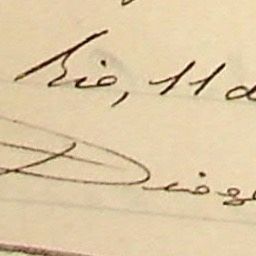 Rio, 11 d
Dioge